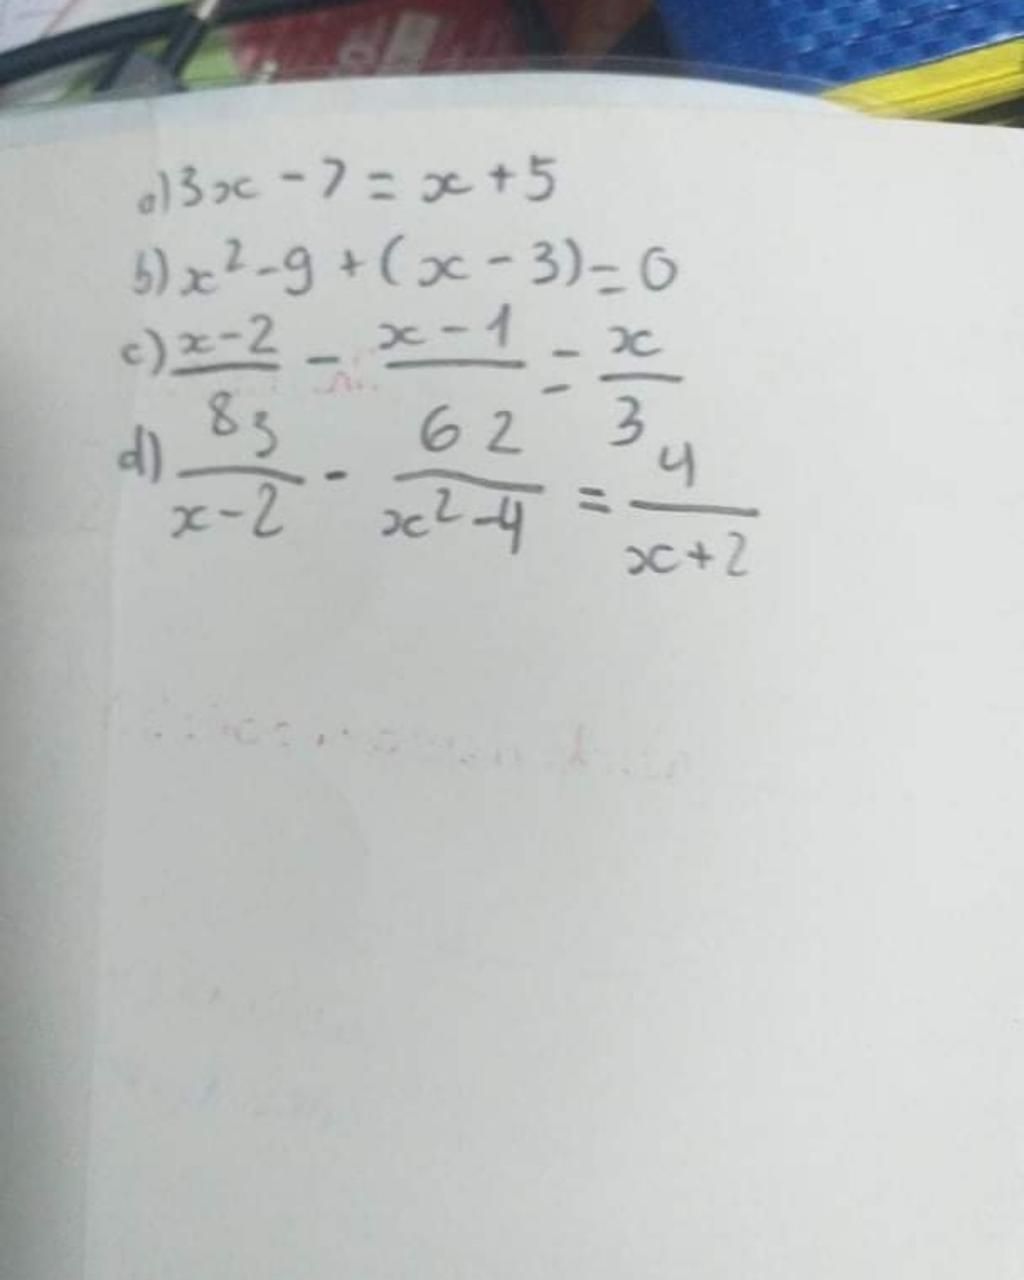 a) 3x - 7 = x + 5
b) x² - 9 + (x - 3) = 0
c) (x-2)/8 - (x-1)/6 = x/3
d) 3/(x-2) - 2/(x²-4) = 4/(x+2)